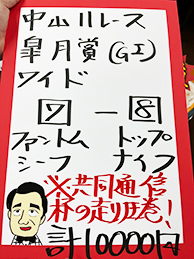 中山11レース
皐月賞(GI)
ワイド
7 - 8
ファントム トップ
シーフ ナイフ
※共同通信
杯の走り圧巻!
計10000円